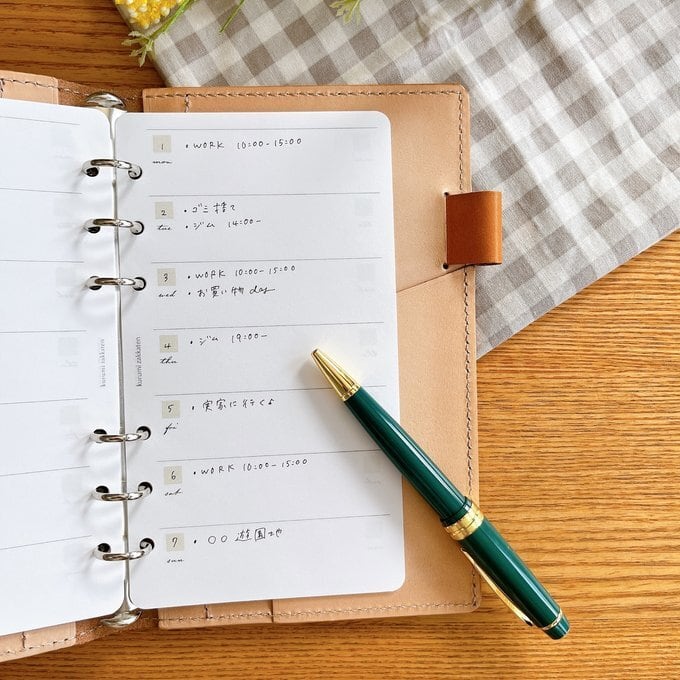 1
mon
• WORK 10:00-15:00
2
tue
• ゴミ捨て
• ジム 14:00-
3
wed
• WORK 10:00-15:00
• お買い物 day
4
thu
• ジム 19:00-
5
fri
• 実家に行くよ
6
sat
• WORK 10:00-15:00
7
sun
• ○○ 遊園地
kurumi zakkaten
kurumi zakkaten